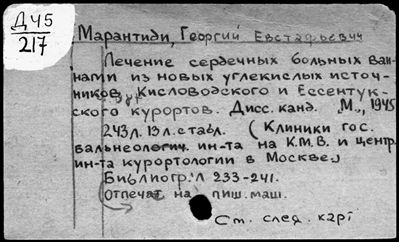 Д45
217
Марантиди, Георгий Евстафьевич
Лечение сердечных больных ван-
нами из новых углекислых источ-
ников Кисловодского и Ессентук-
ского курортов. Дисс. канд. М., 1945
243л. 13л. табл. (Клиники гос.
бальнеологич. ин-та на К.М.В. и центр.
ин-та курортологии в Москве)
Библиогр.: л 233-241.
Отпечат. на пиш. маш.
См. след. карт